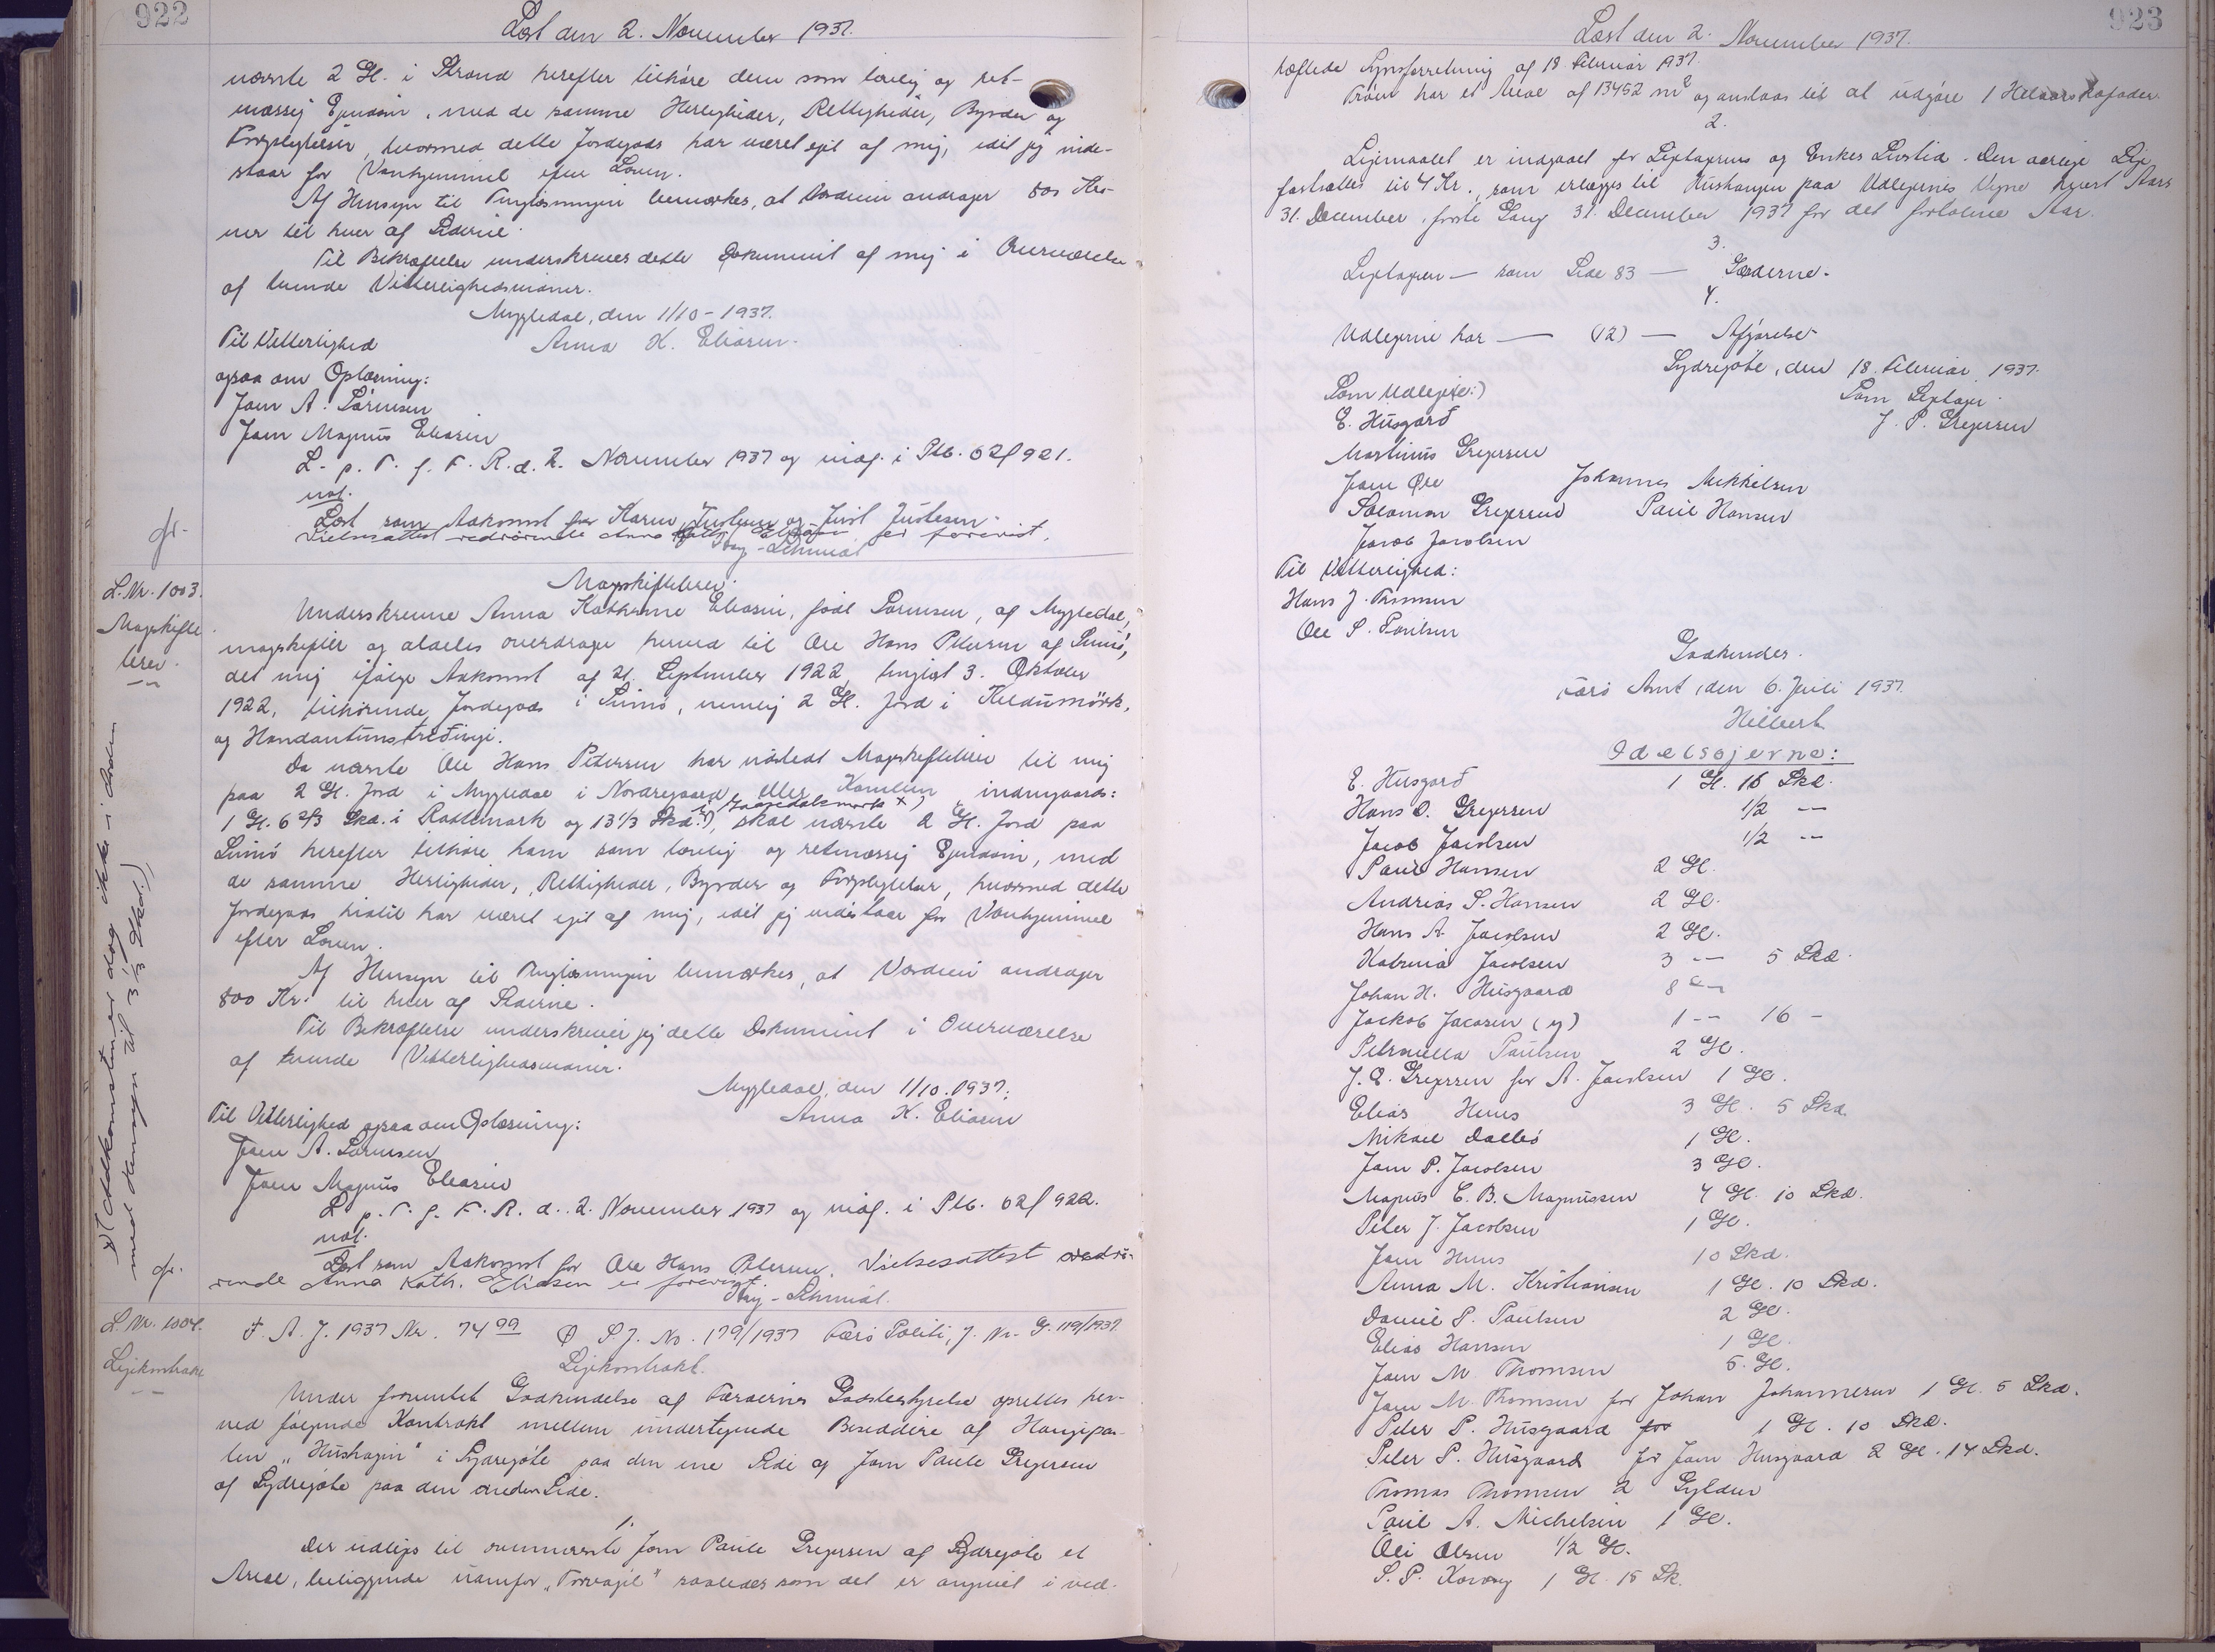 922
Læst den 2. November 1937.
nævnte 2 Gl. i Strond herefter tilhøre dem som lovlig og ret-
mæssig Ejendom, med de samme Herligheder, Rettigheder, Byrder og
Forpligtelser, hvormed dette Jordegods har været ejet af mig, idet jeg inde-
staar for Vanhjemmel efter Loven.
Af Hensyn til Tinglæsningen bemærkes, at Værdien andrager 800 Kro-
ner til hver af Siderne.
Til Bekræftelse underskrives dette Dokument af mig i Overværelse
af tvende Vitterlighedsmænd.
Mygledal, den 1/10 - 1937.
Til Vitterlighed Anna K. Eliasen.
ogsaa om Oplæsning:
Joen A. Sørensen
Joen Magnus Eliasen
L. p. T. f. F. R. d. 2. November 1937 og indf. i Ptb. 02 f 921.
not.
Læst som Adkomst for Karin Justesen og Just Justesen.
Vielsesattest vedrørende Anna Kath. Eliasen er forevist.
Øby-Schmidt
gr.
L. Nr. 1003.
Mageskifte
brev.
Mageskiftebrev.
Underskrevne Anna Kathrine Eliasen, født Sørensen, af Mygledal,
mageskifter og aldeles overdrager herved til Ole Hans Petersen af Svinø,
det mig ifølge Adkomst af 21. September 1922, tinglæst 3. Oktober
1922, tilhørende Jordegods i Svinø, nemlig 2 Gl. Jord i Keldumørk,
og Handantunstreðingi.
Da nævnte Ole Hans Petersen har udstedt Mageskiftebrev til mig
paa 2 Gl. Jord i Mygledal i Norðaregaard eller indengaards:
1 Gl. 6 2/3 Skd. i Raettmark og 13 1/3 Skd. i x), skal nævnte 2 Gl. Jord paa
Svinø herefter tilhøre ham som lovlig og retmæssig Ejendom, med
de samme Herligheder, Rettigheder, Byrder og Forpligtelser, hvormed dette
Jordegods hidtil har været ejet af mig, idet jeg indestaar for Vanhjemmel
efter Loven.
Af Hensyn til Tinglæsningen bemærkes, at Værdien andrager
800 Kr. til hver af Siderne.
Til Bekræftelse underskriver jeg dette Dokument i Overværelse
af tvende Vitterlighedsmænd.
Mygledal, den 1/10. 1937.
Til Vitterlighed ogsaa om Oplæsning: Anna K. Eliasen
Joen A. Sørensen
Joen Magnus Eliasen
L. p. T. f. F. R. d. 2. November 1937 og indf. i Ptb. 02 f 922.
not.
Læst som Adkomst for Ole Hans Petersen. Vielsesattest vedrø-
rende Anna Kath. Eliasen er forevist.
Øby-Schmidt.
gr.
x) (Adkomsten er dog ikke i Orden
med Hensyn til 3 1/3 Skd.)
L. Nr. 1004.
Lejekontrakt
F. A. J. 1937 Nr. 74 99 Ø S. J. No. 179/1937 Færø Politi, J. Nr. G. 119/1937.
Lejekontrakt.
Under forventet Godkendelse af Færøernes Godsbestyrelse oprettes her-
ved følgende Kontrakt mellem undertegnede Besiddere af Haugepar-
ten "Hushagin" i Sydregøte paa den ene Side og Joen Paule Gregersen
af Sydregøte paa den anden Side.
1.
Der udlejes til ovennævnte Joen Paule Gregersen af Sydregøte et
Areal, beliggende udenfor "Torvagil" saaledes som det er angivet i ved-
923
Læst den 2. November 1937.
hæftede Synsforretning af 18. Februar 1937.
Trøen har et Areal af 13452 m2 og anslaas til at udgøre 1 Helaars Kofoder
2.
Lejemaalet er indgaaet for Lejtagerens og Enkes Livstid. Den aarlige Leje
fastsættes til 4 Kr., som erlægges til Hushaugen paa Udlejernes Vegne hvert Aars
31. December, første Gang 31. December 1937 for det forløbne Aar.
3.
Lejetageren — som Side 83 — Gærderne.
4.
Udlejerne har — (12) — Afgørelse
Sydregøte, den 18. Februar 1937.
Som Udlejere:) Som Lejetager:
E. Húsgarð J. P. Gregersen
Martinus Gregersen
Joen Øre Johannes Mikkelsen
Salomon Gregersen Paul Hansen
Jacob Jacobsen
Til Vitterlighed:
Hans J. Thomsen
Ole S. Poulsen
Godkendes.
Færø Amt, den 6. Juli 1937.
Hilbert
Odelsejerne:
E. Húsgarð 1 Gl. 16 Skd.
Hans D. Gregersen 1/2 —
Jacob Jacobsen 1/2 —
Paul Hansen 2 Gl.
Andrias S. Hansen 2 Gl.
Hans A. Jacobsen 2 Gl.
Katrina Jacobsen 3 — 5 Skd.
Johan H. Husgaard 8 —
Jackob Jacobsen (y) 1 — 16 —
Petronella Paulsen 2 Gl.
J. E. Gregersen for A. Jacobsen 1 Gl.
Elias Huus 3 Gl. 5 Skd.
Mikael Dalbø 1 Gl.
Joen P. Jacobsen 3 Gl.
Magnus C. B. Magnussen 4 Gl. 10 Skd.
Peter J. Jacobsen 1 Gl.
Joen Huus 10 Skd.
Anna M. Kristiansen 1 Gl. 10 Skd.
Daniel P. Paulsen 2 Gl.
Elias Hansen 1 Gl.
Joen M. Thomsen 5. Gl.
Joen M. Thomsen for Johan Johannesen 1 Gl. 5 Skd.
Peter P. Husgaard for 1 Gl. 10 Skd.
Peter P. Husgaard for Joen Husgaard 2 Gl. 14 Skd.
Thomas Thomsen 2 Gylden
Paul A. Michelsen 1 Gl.
Oli Olsen 1/2 Gl.
S. P. 1 Gl. 15 Sk.